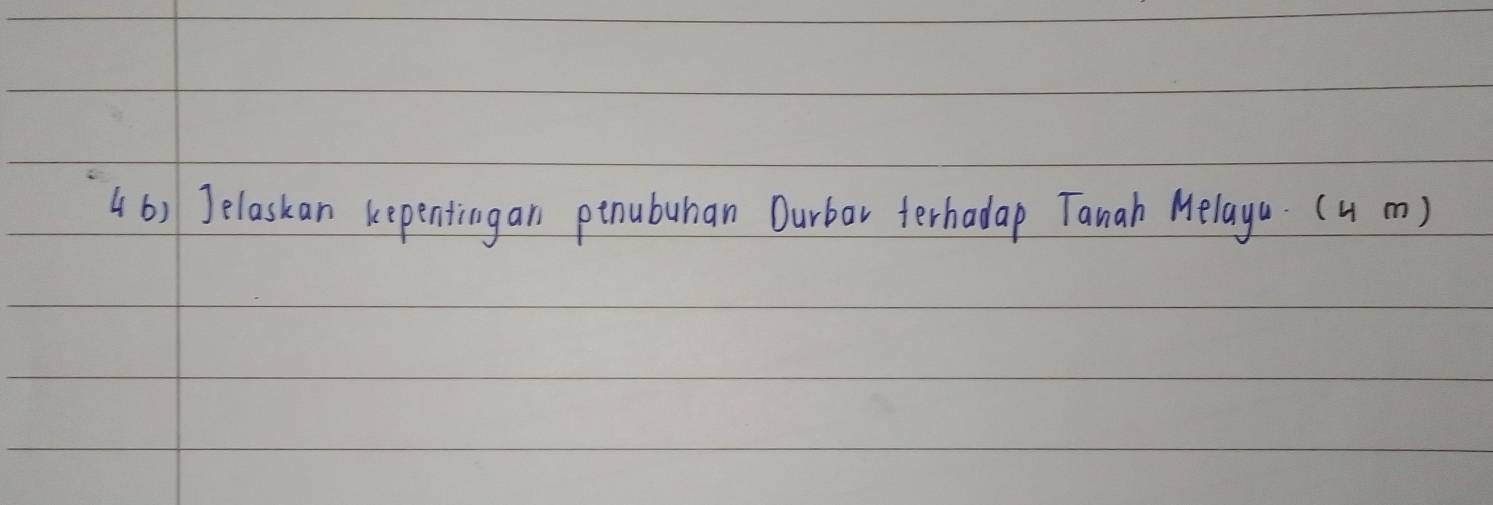 4 b) Jelaskan kepentingan penubuhan Durbar terhadap Tanah Melayu. (4 m)